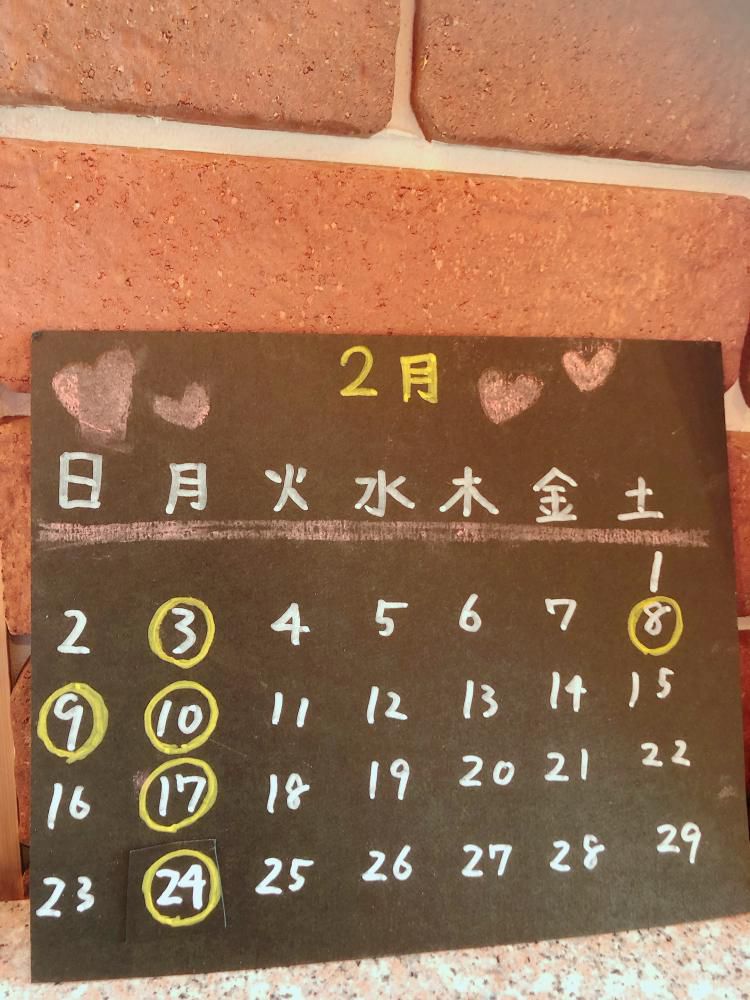 2月
日 月 火 水 木 金 土
1
2 3 4 5 6 7 8
9 10 11 12 13 14 15
16 17 18 19 20 21 22
23 24 25 26 27 28 29